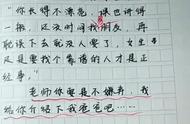 “你长得不漂亮，琪巴讲得
一般，还没时间找朋友，再
耽误下去就没人要了，女生早
是要找个靠谱的人才是正
经事。”
老师你要是不嫌弃，我
给你介绍下我爸爸吧……